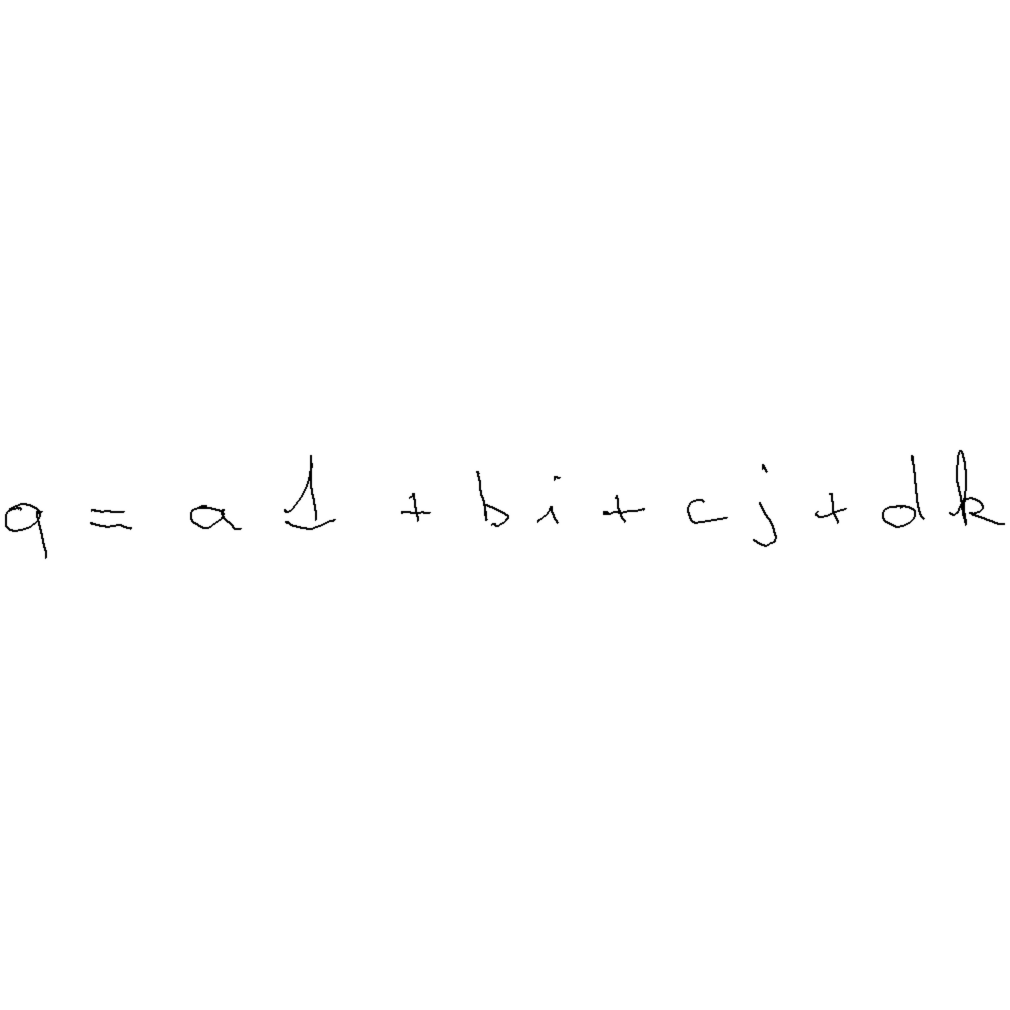 q = a 1 + b i + c j + d k